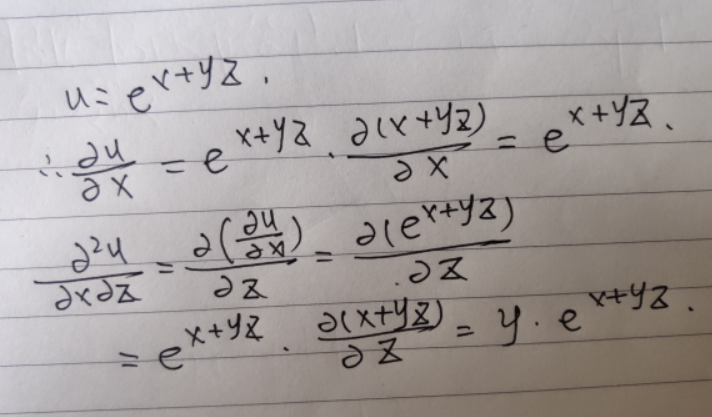 u = e^{x+yz}.
∴ \frac{∂u}{∂x} = e^{x+yz} · \frac{∂(x+yz)}{∂x} = e^{x+yz}.
\frac{∂²u}{∂x∂z} = \frac{∂(\frac{∂u}{∂x})}{∂z} = \frac{∂(e^{x+yz})}{∂z}
= e^{x+yz} · \frac{∂(x+yz)}{∂z} = y · e^{x+yz}.